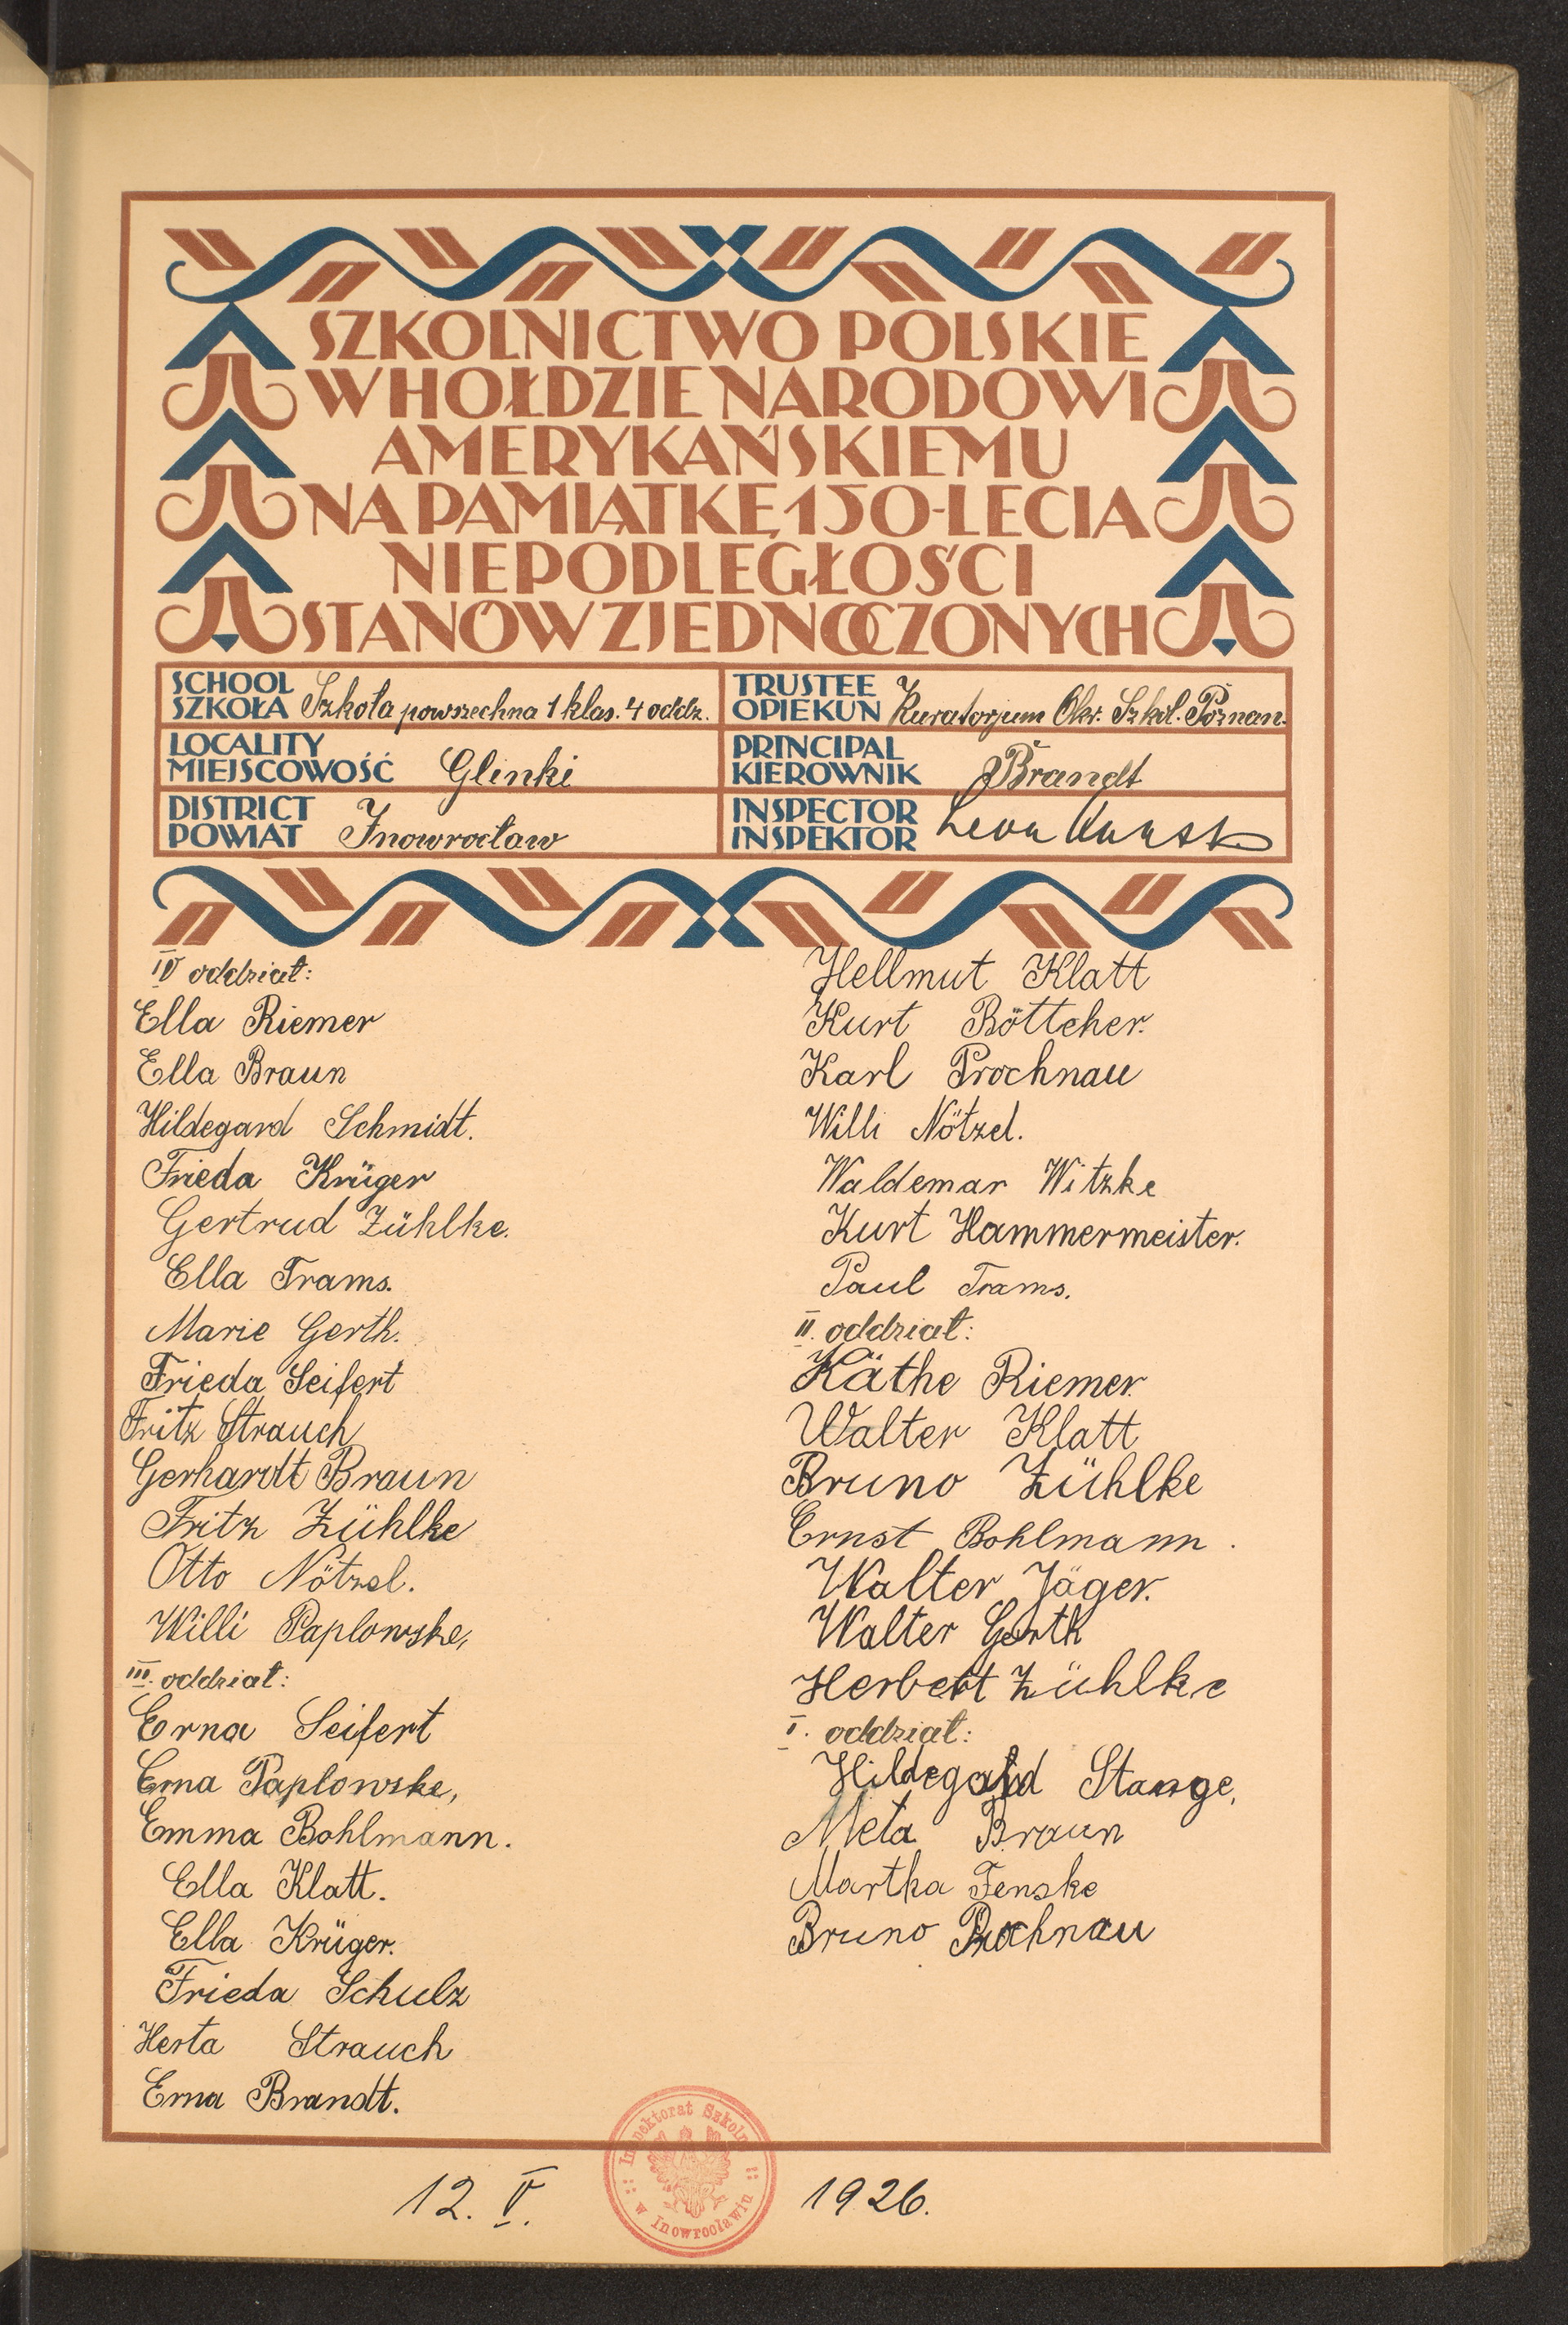 SZKOLNICTWO POLSKIE
W HOŁDZIE NARODOWI
AMERYKAŃSKIEMU
NA PAMIĄTKĘ 150-LECIA
NIEPODLEGŁOŚCI
STANÓW ZJEDNOCZONYCH
SCHOOL
SZKOŁA Szkoła powszechna 1 klas. 4 oddz.
TRUSTEE
OPIEKUN Kuratorjum Okr. Szkol. Poznan.
LOCALITY
MIEJSCOWOŚĆ Glinki
PRINCIPAL
KIEROWNIK Brandt
DISTRICT
POWIAT Inowrocław
INSPECTOR
INSPEKTOR Leon
IV oddział:
Ella Riemer
Ella Braun
Hildegard Schmidt.
Frieda Krüger
Gertrud Zühlke.
Ella Trams.
Marie Gerth.
Frieda Seifert
Fritz Strauch
Gerhardt Braun
Fritz Zühlke
Otto Nötzel.
Willi Paplowske,
III. oddział:
Erna Seifert
Erna Paplowske,
Emma Bohlmann.
Ella Klatt.
Ella Krüger.
Frieda Schulz
Herta Strauch
Erna Brandt.
Hellmut Klatt
Kurt Böttcher.
Karl Prochnau
Willi Nötzel.
Waldemar Witzke
Kurt Hammermeister.
Paul Trams.
II. oddział:
Käthe Riemer
Walter Klatt
Bruno Zühlke
Ernst Bohlmann.
Walter Jäger.
Walter Gerth
Herbert Zühlke
I. oddział:
Hildegard Stange,
Meta Braun
Martha Fenske
Bruno Prochnau
Inspektorat Szkolny
w Inowrocławiu
12. V. 1926.